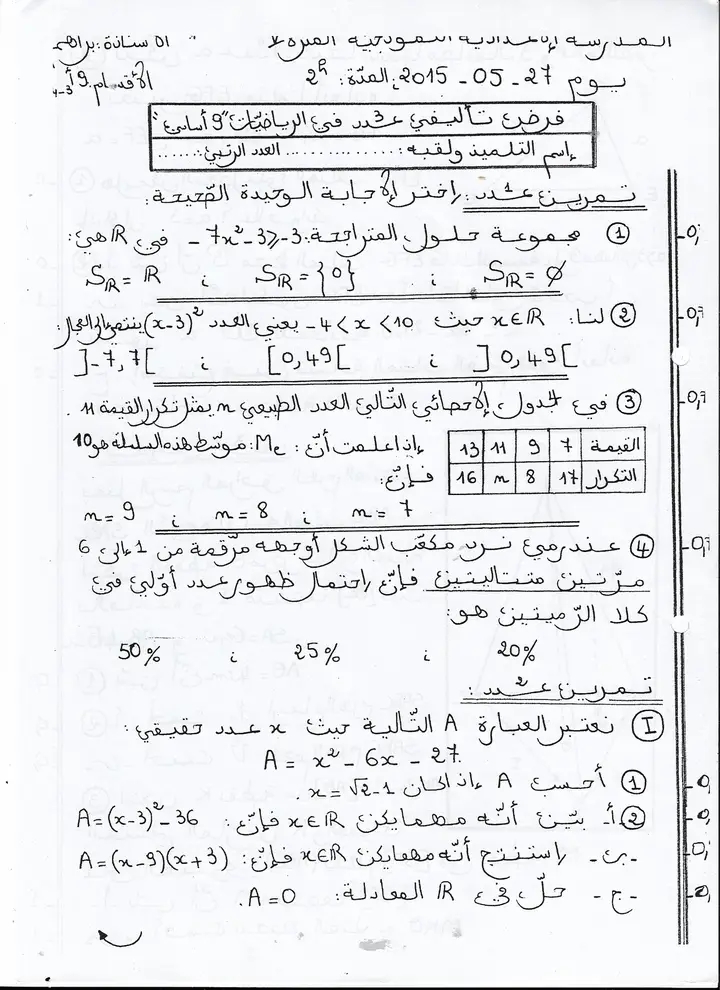 المدرسة الإعدادية النموذجية المنزه
الأستاذة: براهم
يوم 27 - 05 - 2015؛ المدّة: 2h
الأقسام: 9أ 3-4
فرض تأليفي عدد 3 في الرياضيّات "9 أساسي"
إسم التلميذ ولقبه: ............... العدد الرتبي: ......
تمرين عدد 1: إختر الإجابة الوحيدة الصّحيحة:
① مجموعة حلول المتراجحة: -7x² - 3 ≥ -3 في IR هي:
S_IR = ∅ ؛ S_IR = {0} ؛ S_IR = IR
② لنا: x ∈ IR حيث -4 < x < 10 يعني العدد (x-3)² ينتمي إلى المجال:
]0,49[ ؛ [0,49[ ؛ ]-7,7[
③ في الجدول الإحصائي التّالي العدد الطبيعي n يمثل تكرار القيمة 11.
القيمة 7 9 11 13
التكرار 17 8 n 16
إذا علمت أنّ: Me: موسّط هذه السلسلة هو 10
فإنّ:
n = 7 ؛ n = 8 ؛ n = 9
④ عند رمي نرد مكعّب الشكل أوجهه مرّقمة من 1 إلى 6
مرّتين متتاليتين فإنّ إحتمال ظهور عدد أوّلي في
كلا الرّميتين هو:
20% ؛ 25% ؛ 50%
تمرين عدد 2:
Ⅰ نعتبر العبارة A التّالية حيث x عدد حقيقي:
A = x² - 6x - 27.
① أحسب A إذا كان x = √2 - 1.
②.أ. بيّن أنّه مهما يكن x ∈ IR فإنّ: A = (x-3)² - 36
-ب- إستنتج أنّه مهما يكن x ∈ IR فإنّ: A = (x-9)(x+3)
-ج- حلّ في IR المعادلة: A = 0.